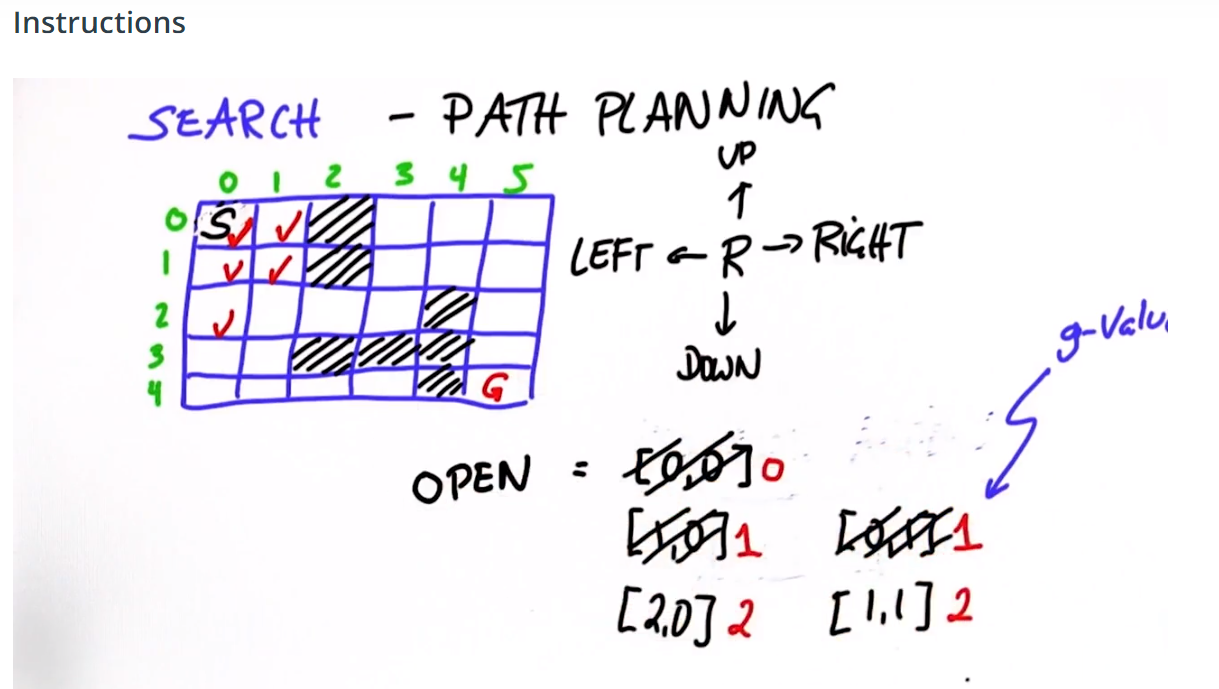 Instructions
SEARCH - PATH PLANNING
UP
0 1 2 3 4 5
0 S
LEFT ← R → RIGHT
1
2
DOWN
3
4 G
OPEN = [0,0] 0
[1,0] 1 [0,1] 1
[2,0] 2 [1,1] 2